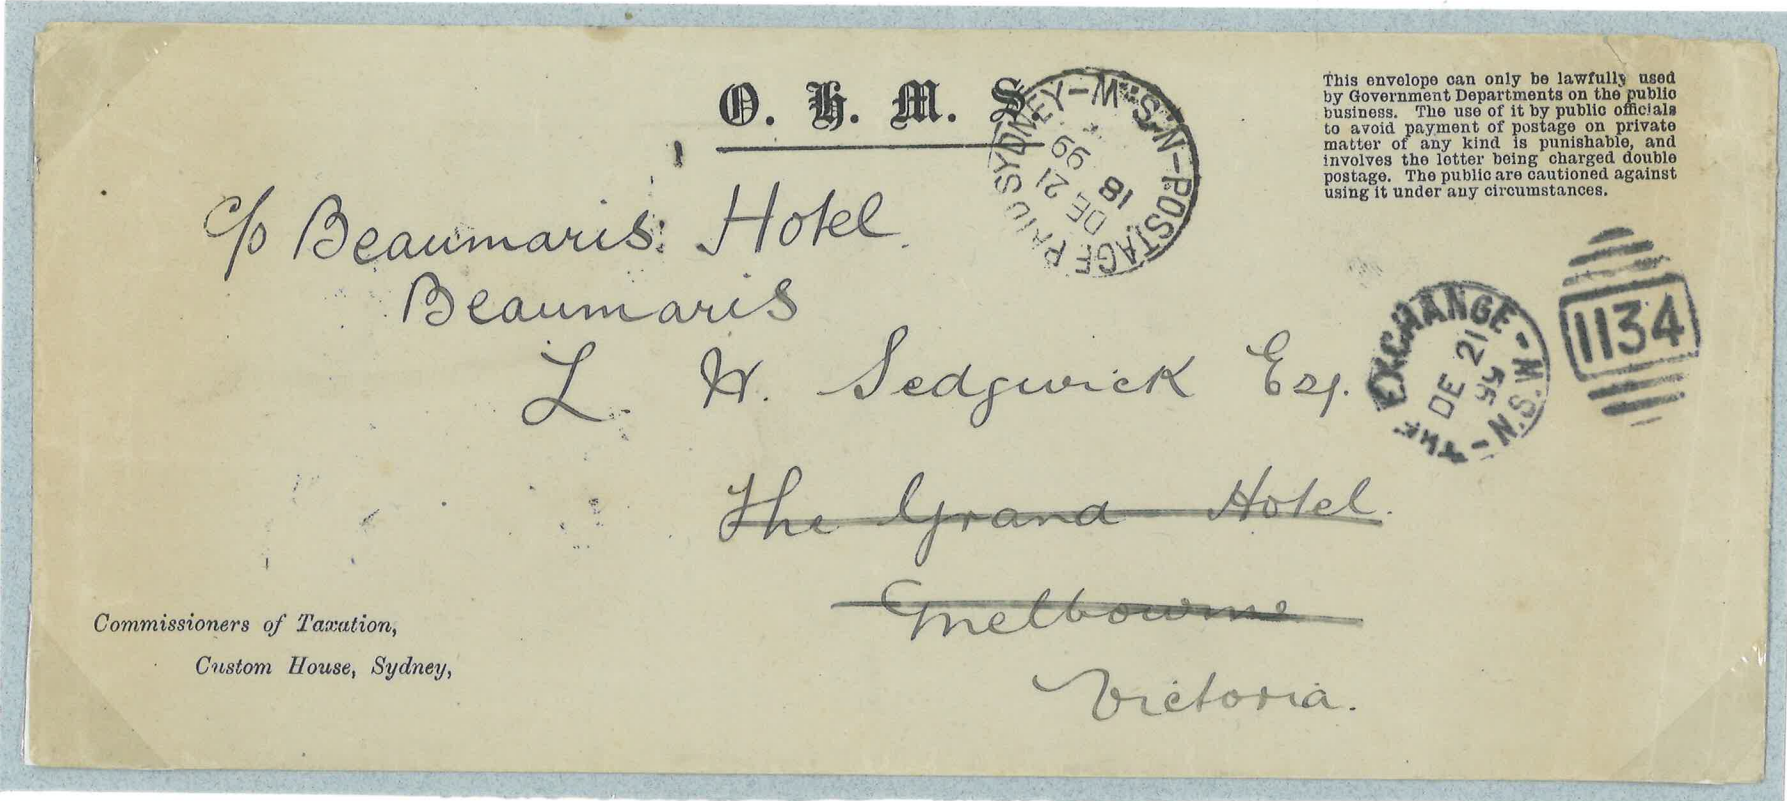 O. H. M. S.
This envelope can only be lawfully used
by Government Departments on the public
business. The use of it by public officials
to avoid payment of postage on private
matter of any kind is punishable, and
involves the letter being charged double
postage. The public are cautioned against
using it under any circumstances.
POSTAGE PAID SYDNEY-N.S.W-
18
DE 21
99
c/o Beaumaris Hotel
Beaumaris
L. W. Sedgwick Esq.
THE EXCHANGE - N.S.W -
DE 21
1134
The Grand Hotel.
Melbourne
Victoria.
Commissioners of Taxation,
Custom House, Sydney,